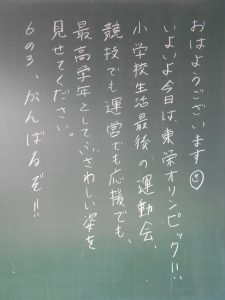 おはようございます☺
いよいよ今日は、東栄オリンピック!!
小学校生活最後の運動会、
競技でも運営でも応援でも、
最高学年としてふさわしい姿を
見せてください。
6の3、がんばるぞ!!